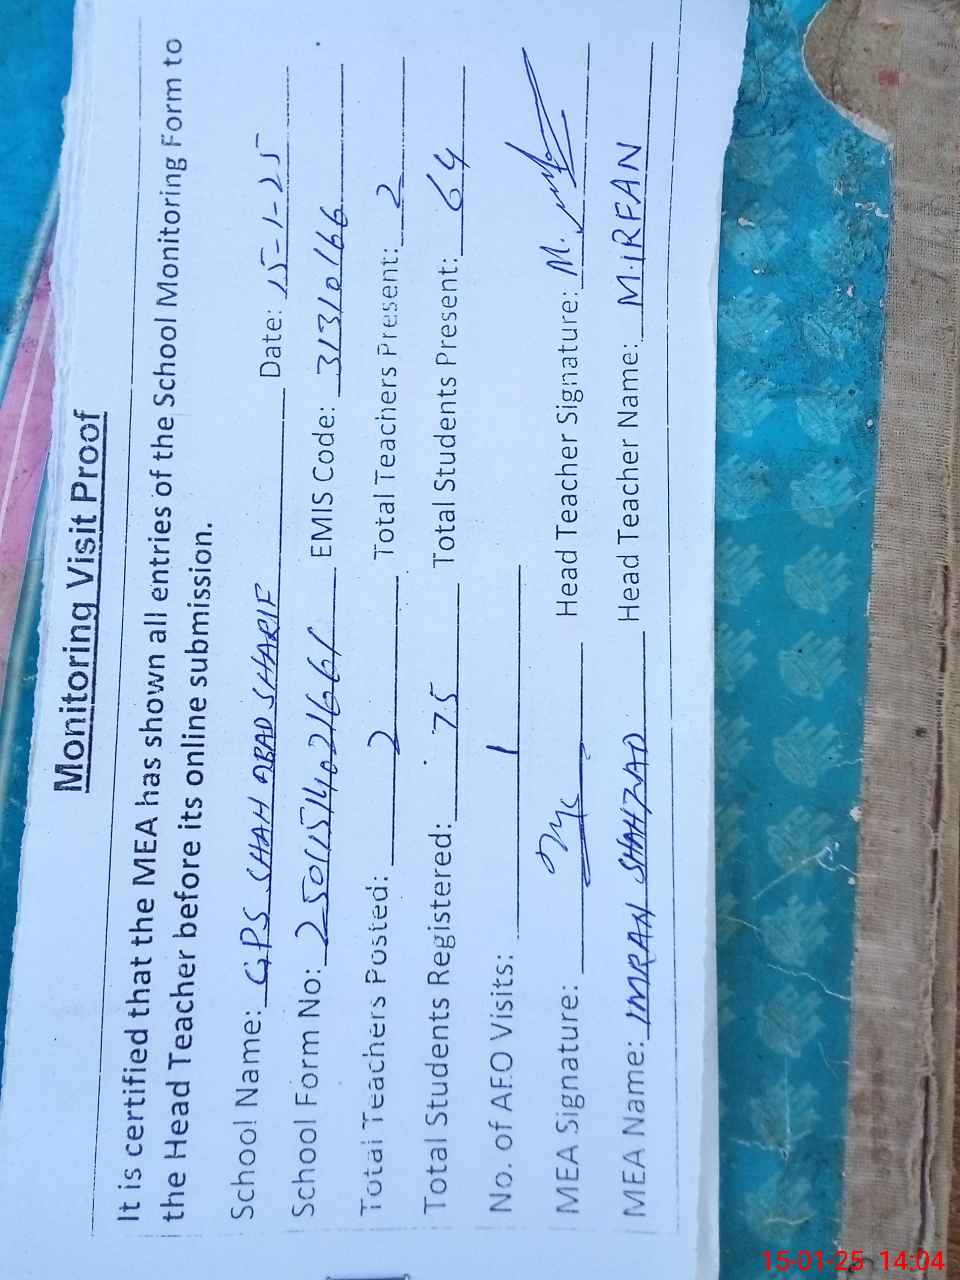 Monitoring Visit Proof
It is certified that the MEA has shown all entries of the School Monitoring Form to
the Head Teacher before its online submission.
School Name: GPS SHAH ABAD SHARIF Date: 15-1-25
School Form No: EMIS Code: 31310166
Total Teachers Posted: 2 Total Teachers Present: 2
Total Students Registered: 75 Total Students Present: 64
No. of AEO Visits: 1
MEA Signature: Head Teacher Signature: M.
MEA Name: IMRAN SHAHZAD Head Teacher Name: M.IRFAN
15-01-25 14:04